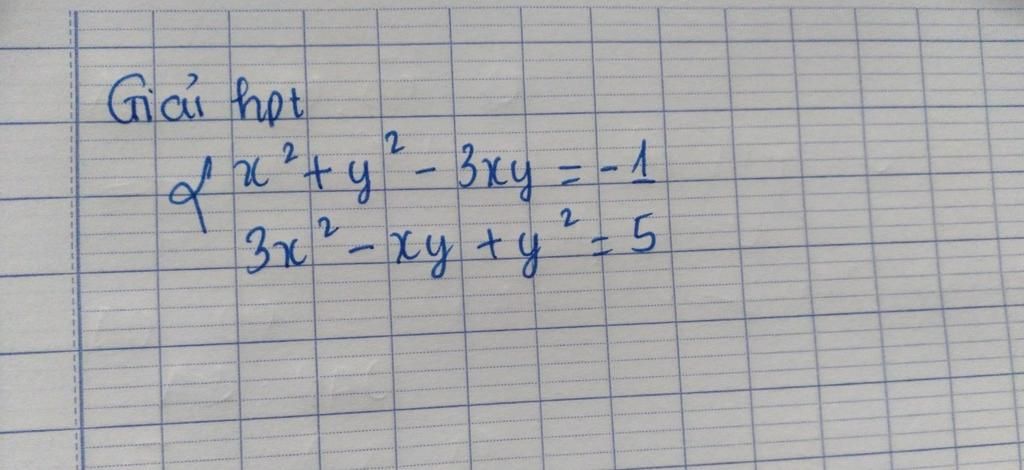 Giải hpt
{ x² + y² - 3xy = -1
3x² - xy + y² = 5